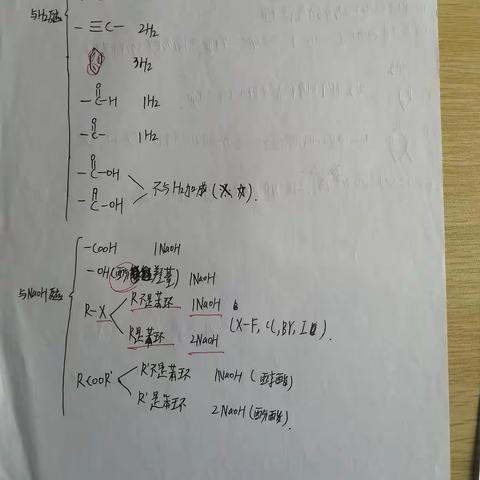 与H2
-≡C- 2H2
3H2
O
-C-H 1H2
O
-C- 1H2
O
-C-OH
-C-OH 不与H2加成
与NaOH
-COOH 1NaOH
-OH(酚羟基) 1NaOH
R-X R不是苯环 1NaOH
R是苯环 2NaOH
(X-F, Cl, Br, I).
RCOOR' R'不是苯环 1NaOH (醇酯)
R'是苯环 2NaOH(酚酯).